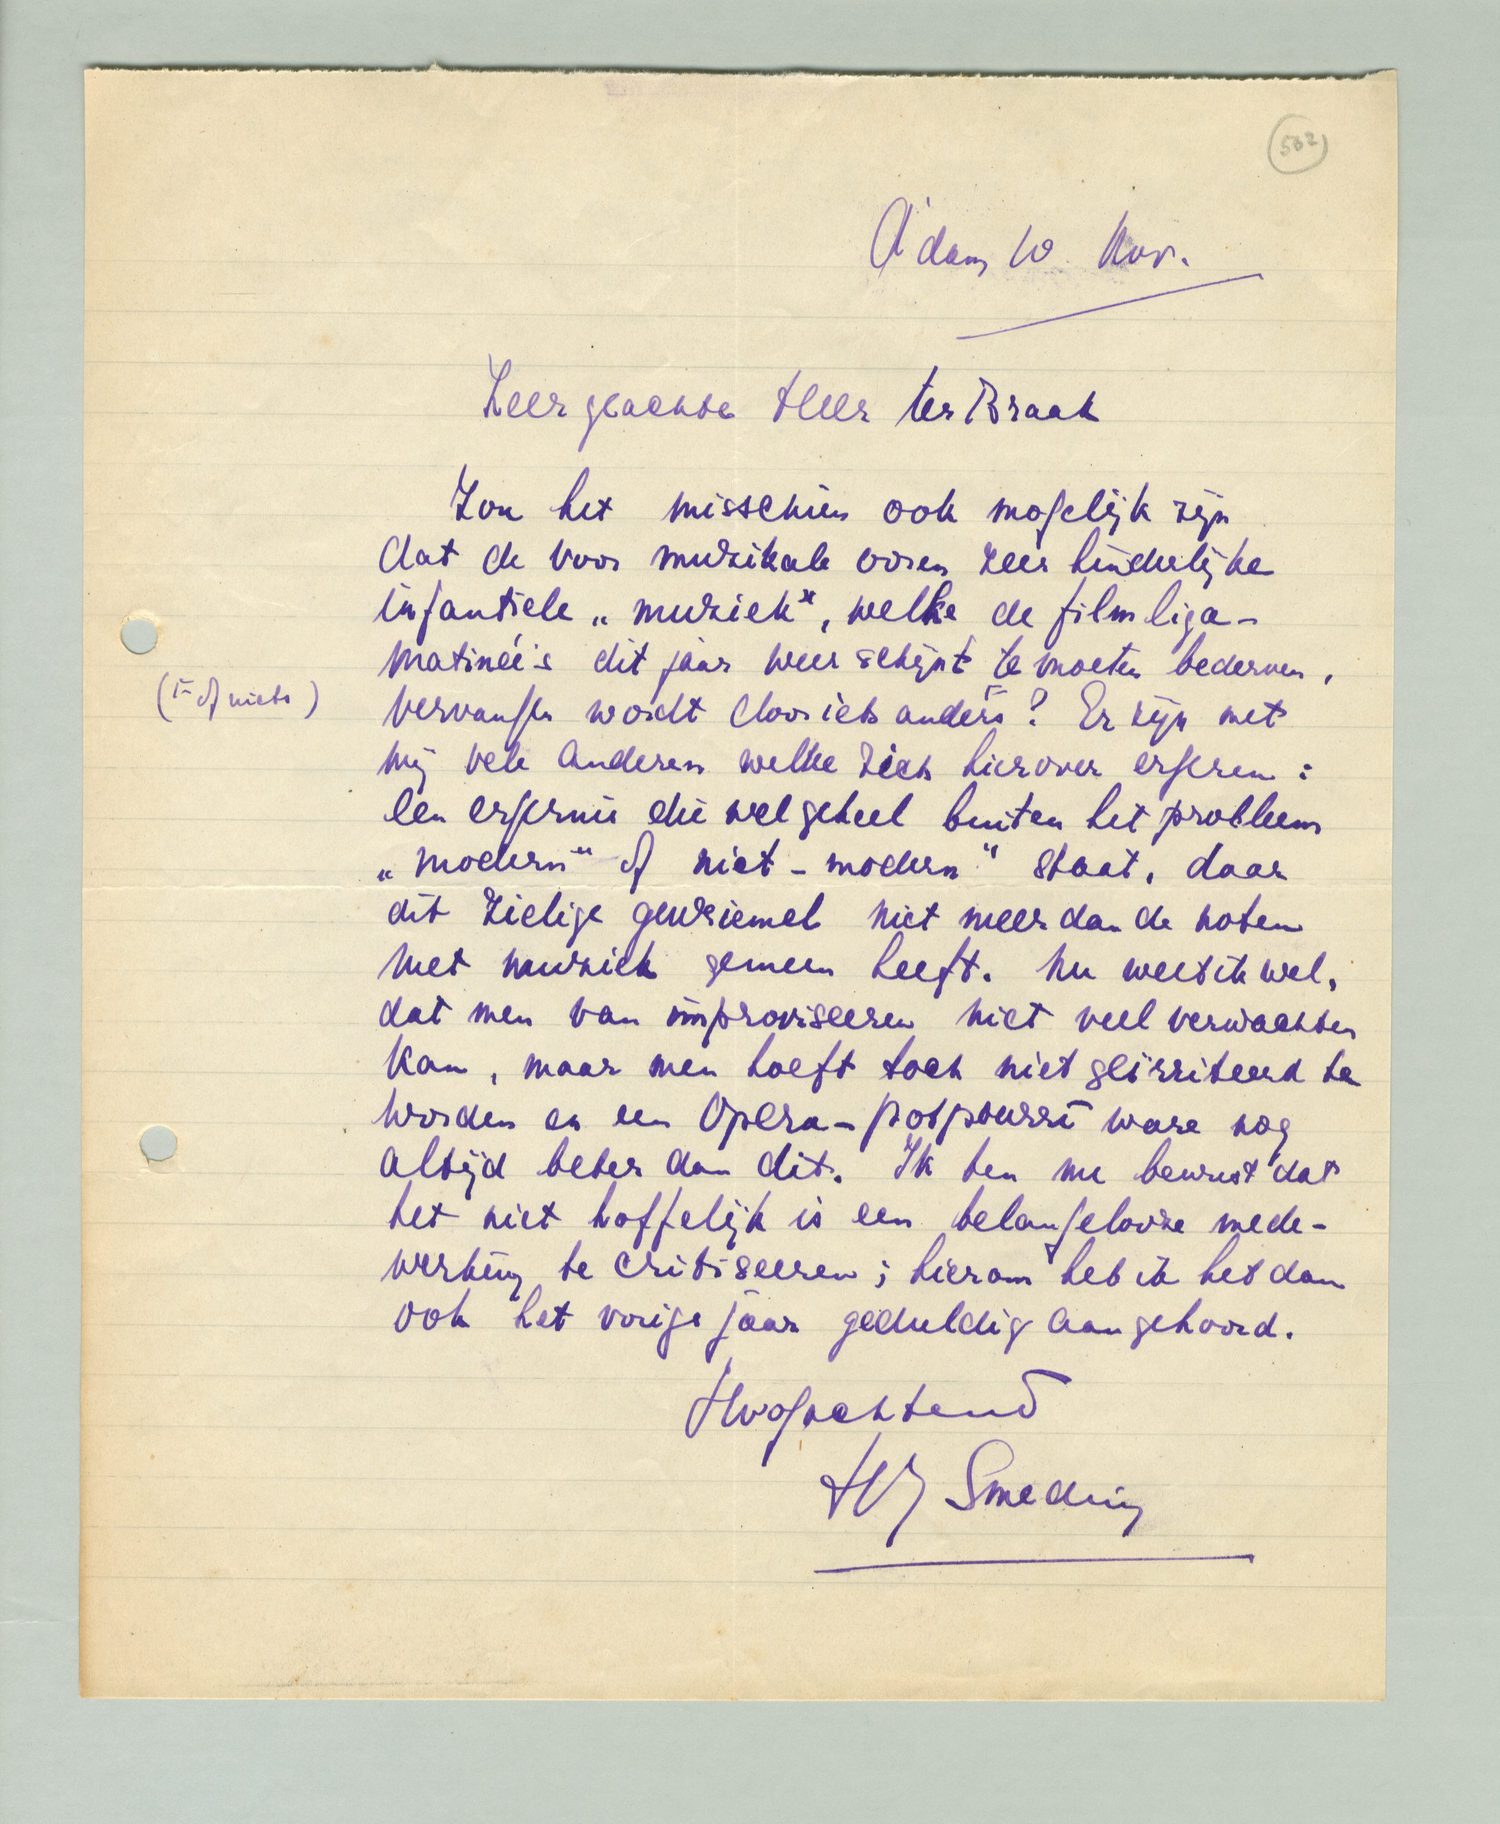 532
A'dam 10 Nov.
Zeer geachte Heer ter Braak
Zou het misschien ook mogelijk zijn
dat de voor muzikale ooren zeer hinderlijke
infantiele „muziek", welke de filmliga-
matineé's dit jaar weer schijnt te moeten bederven,
(⊢ of niets)
vervangen wordt door iets anders ⊢? Er zijn met
mij vele anderen welke zich hierover ergeren:
een ergernis die wel geheel buiten het probleem
„modern" of niet-modern" staat, daar
dit zielige gewriemel niet meer dan de noten
met muziek gemeen heeft. Nu weet ik wel,
dat men van improviseeren niet veel verwachten
kan, maar men hoeft toch niet geïrriteerd te
worden en een Opera-potpourri ware nog
altijd beter dan dit. Ik ben me bewust dat
het niet hoffelijk is een belangelooze mede-
werking te critiseeren; hierom heb ik het dan
ook het vorige jaar geduldig aangehoord.
Hoogachtend
HJ Smeding